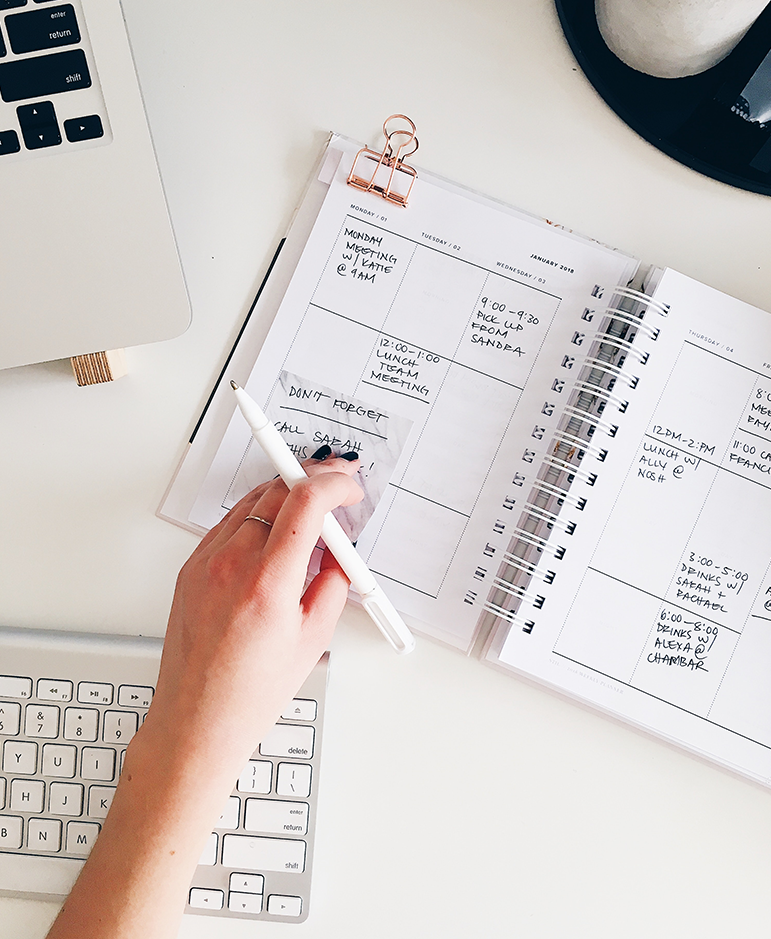 enter
return
shift
JANUARY 2018
MONDAY / 01
MONDAY
MEETING
W/ KATIE
@ 9AM
TUESDAY / 02
12:00-1:00
LUNCH
TEAM
MEETING
WEDNESDAY / 03
9:00-9:30
PICK UP
FROM
SANDRA
DON'T FORGET
CALL SARAH
THIS
!
THURSDAY / 04
12PM-2PM
LUNCH W/
ALLY @
NOSH
3:00-5:00
DRINKS W/
SARAH +
RACHAEL
6:00-8:00
DRINKS W/
ALEXA @
CHAMBAR
11:00
& 7
* 8
( 9
Y U I
H J K
B N M
delete
enter
return
shift